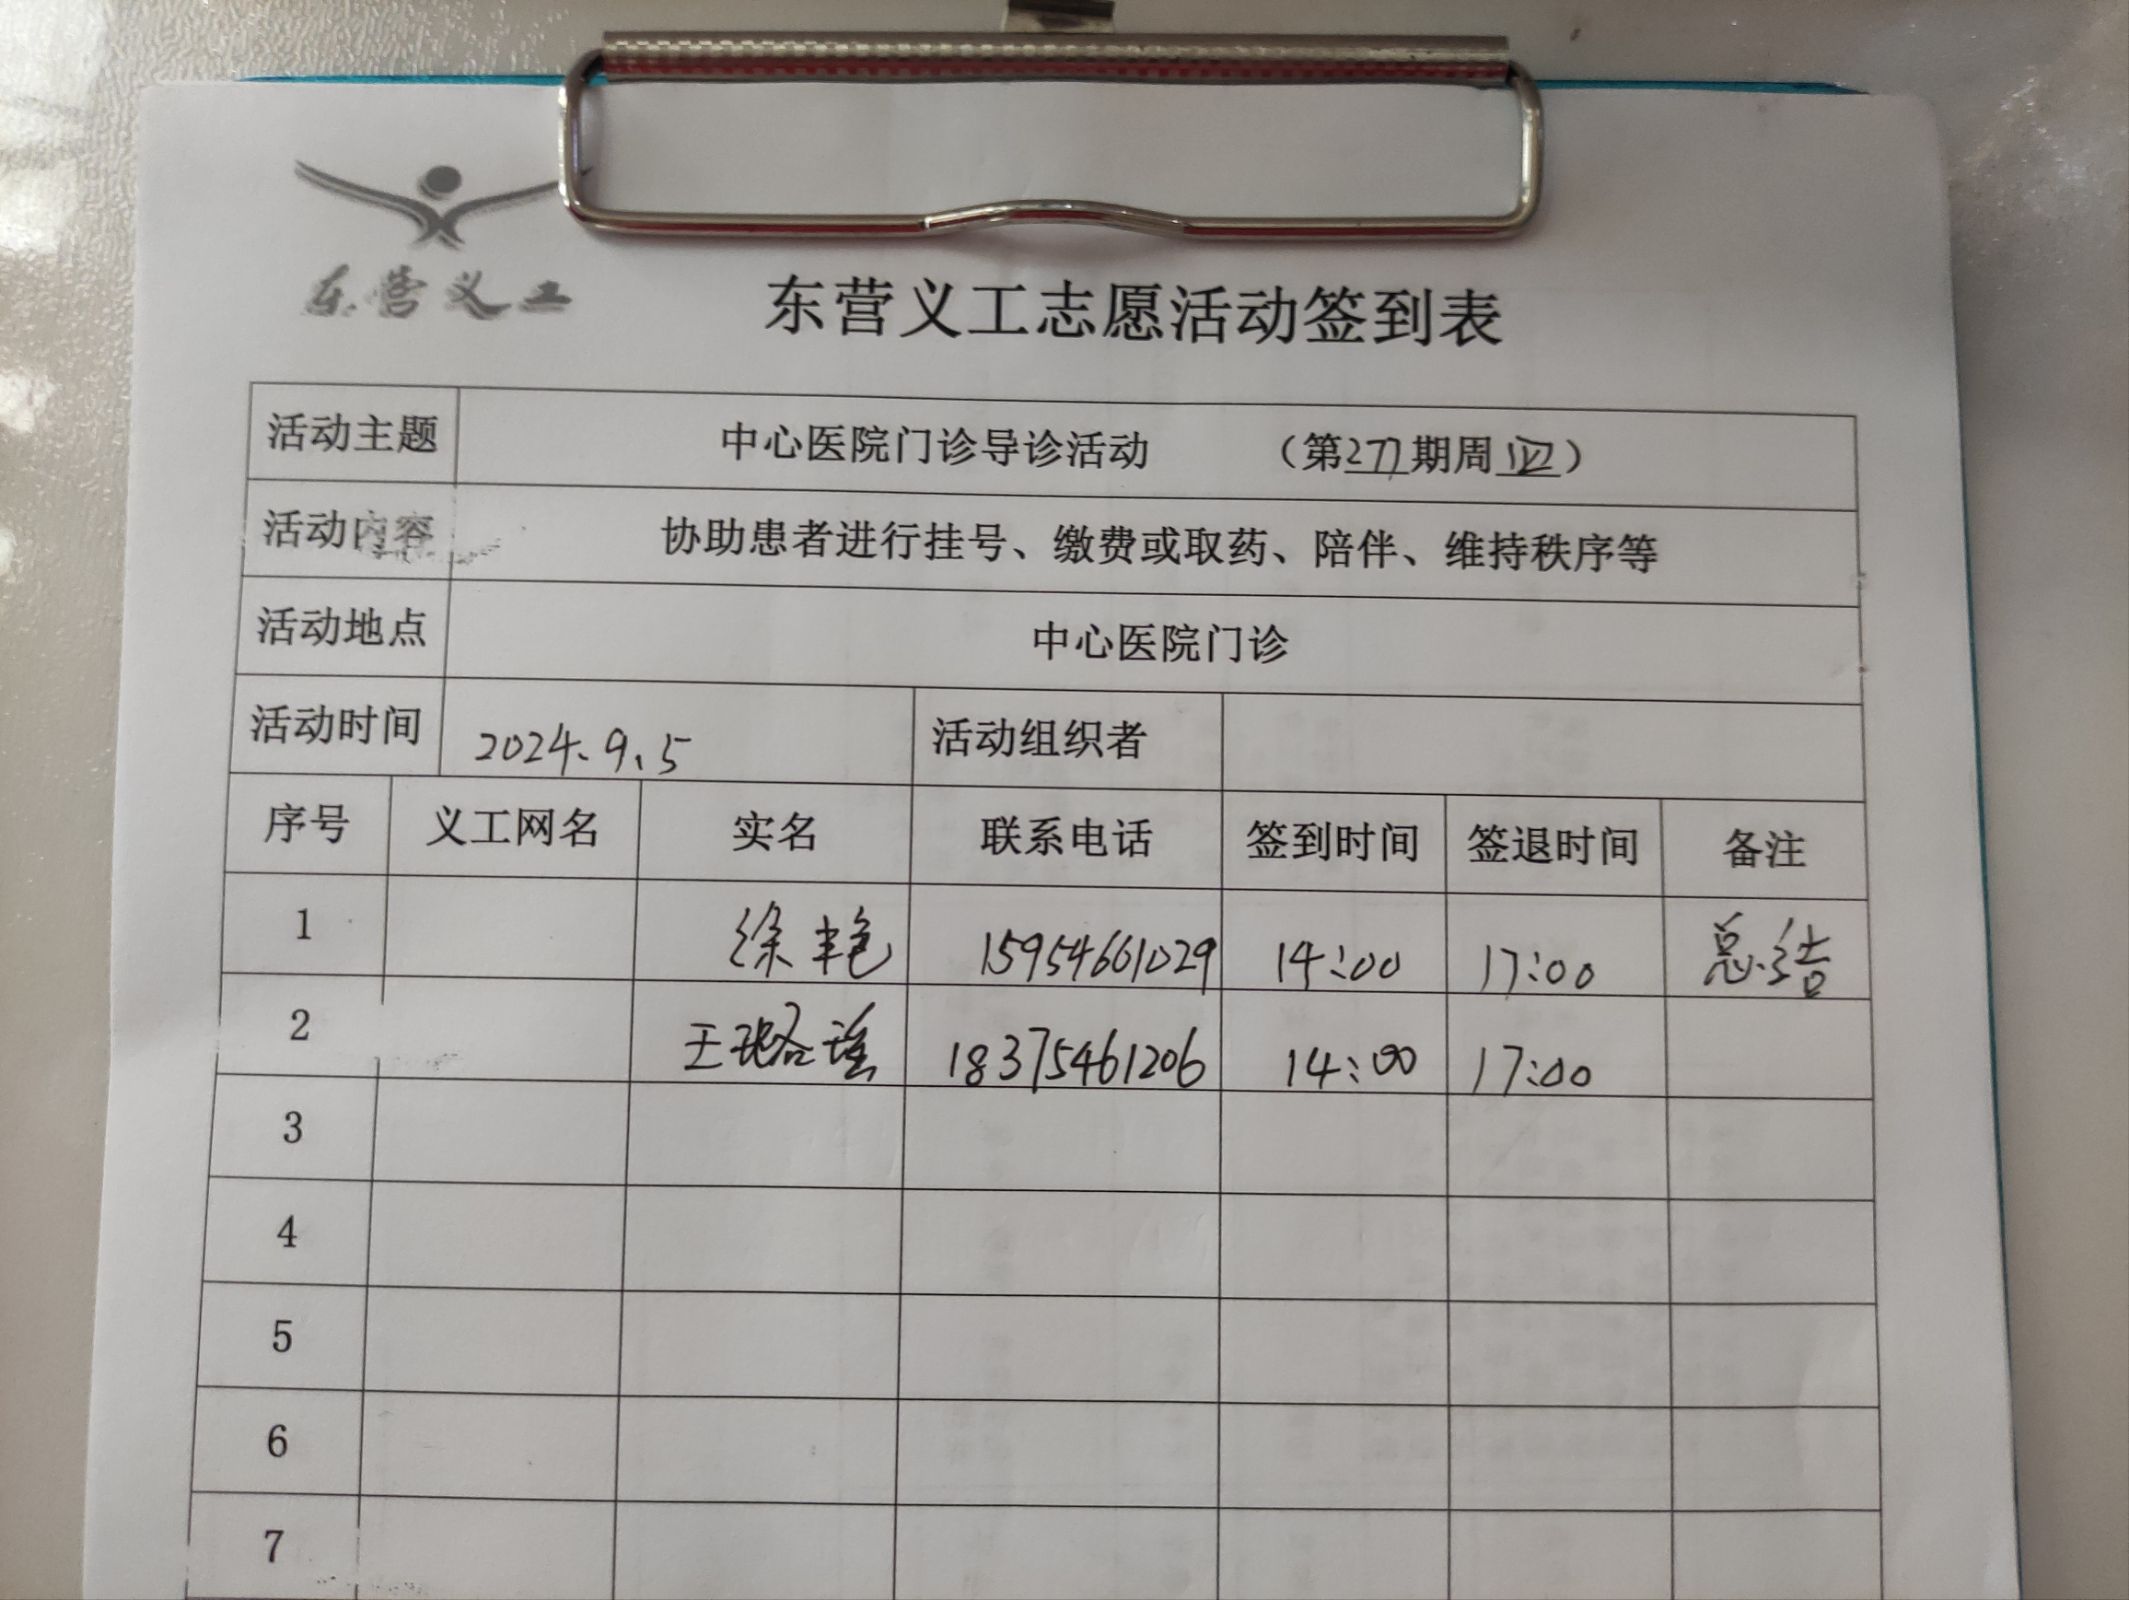 东营义工
东营义工志愿活动签到表
活动主题 中心医院门诊导诊活动 （第277期周四）
活动内容 协助患者进行挂号、缴费或取药、陪伴、维持秩序等
活动地点 中心医院门诊
活动时间 2024.9.5 活动组织者
序号 义工网名 实名 联系电话 签到时间 签退时间 备注
1 徐艳 15954661029 14:00 17:00 总结
2 王璐瑶 18375461206 14:00 17:00
3
4
5
6
7